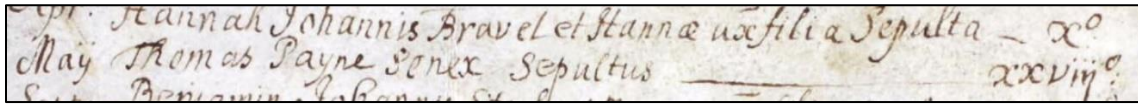 Apr. Hannah Johannis Bravel et Hannæ ux filia Sepulta — x°
Maij Thomas Payne Senex Sepultus — xxviij°
Benjamin Johannis